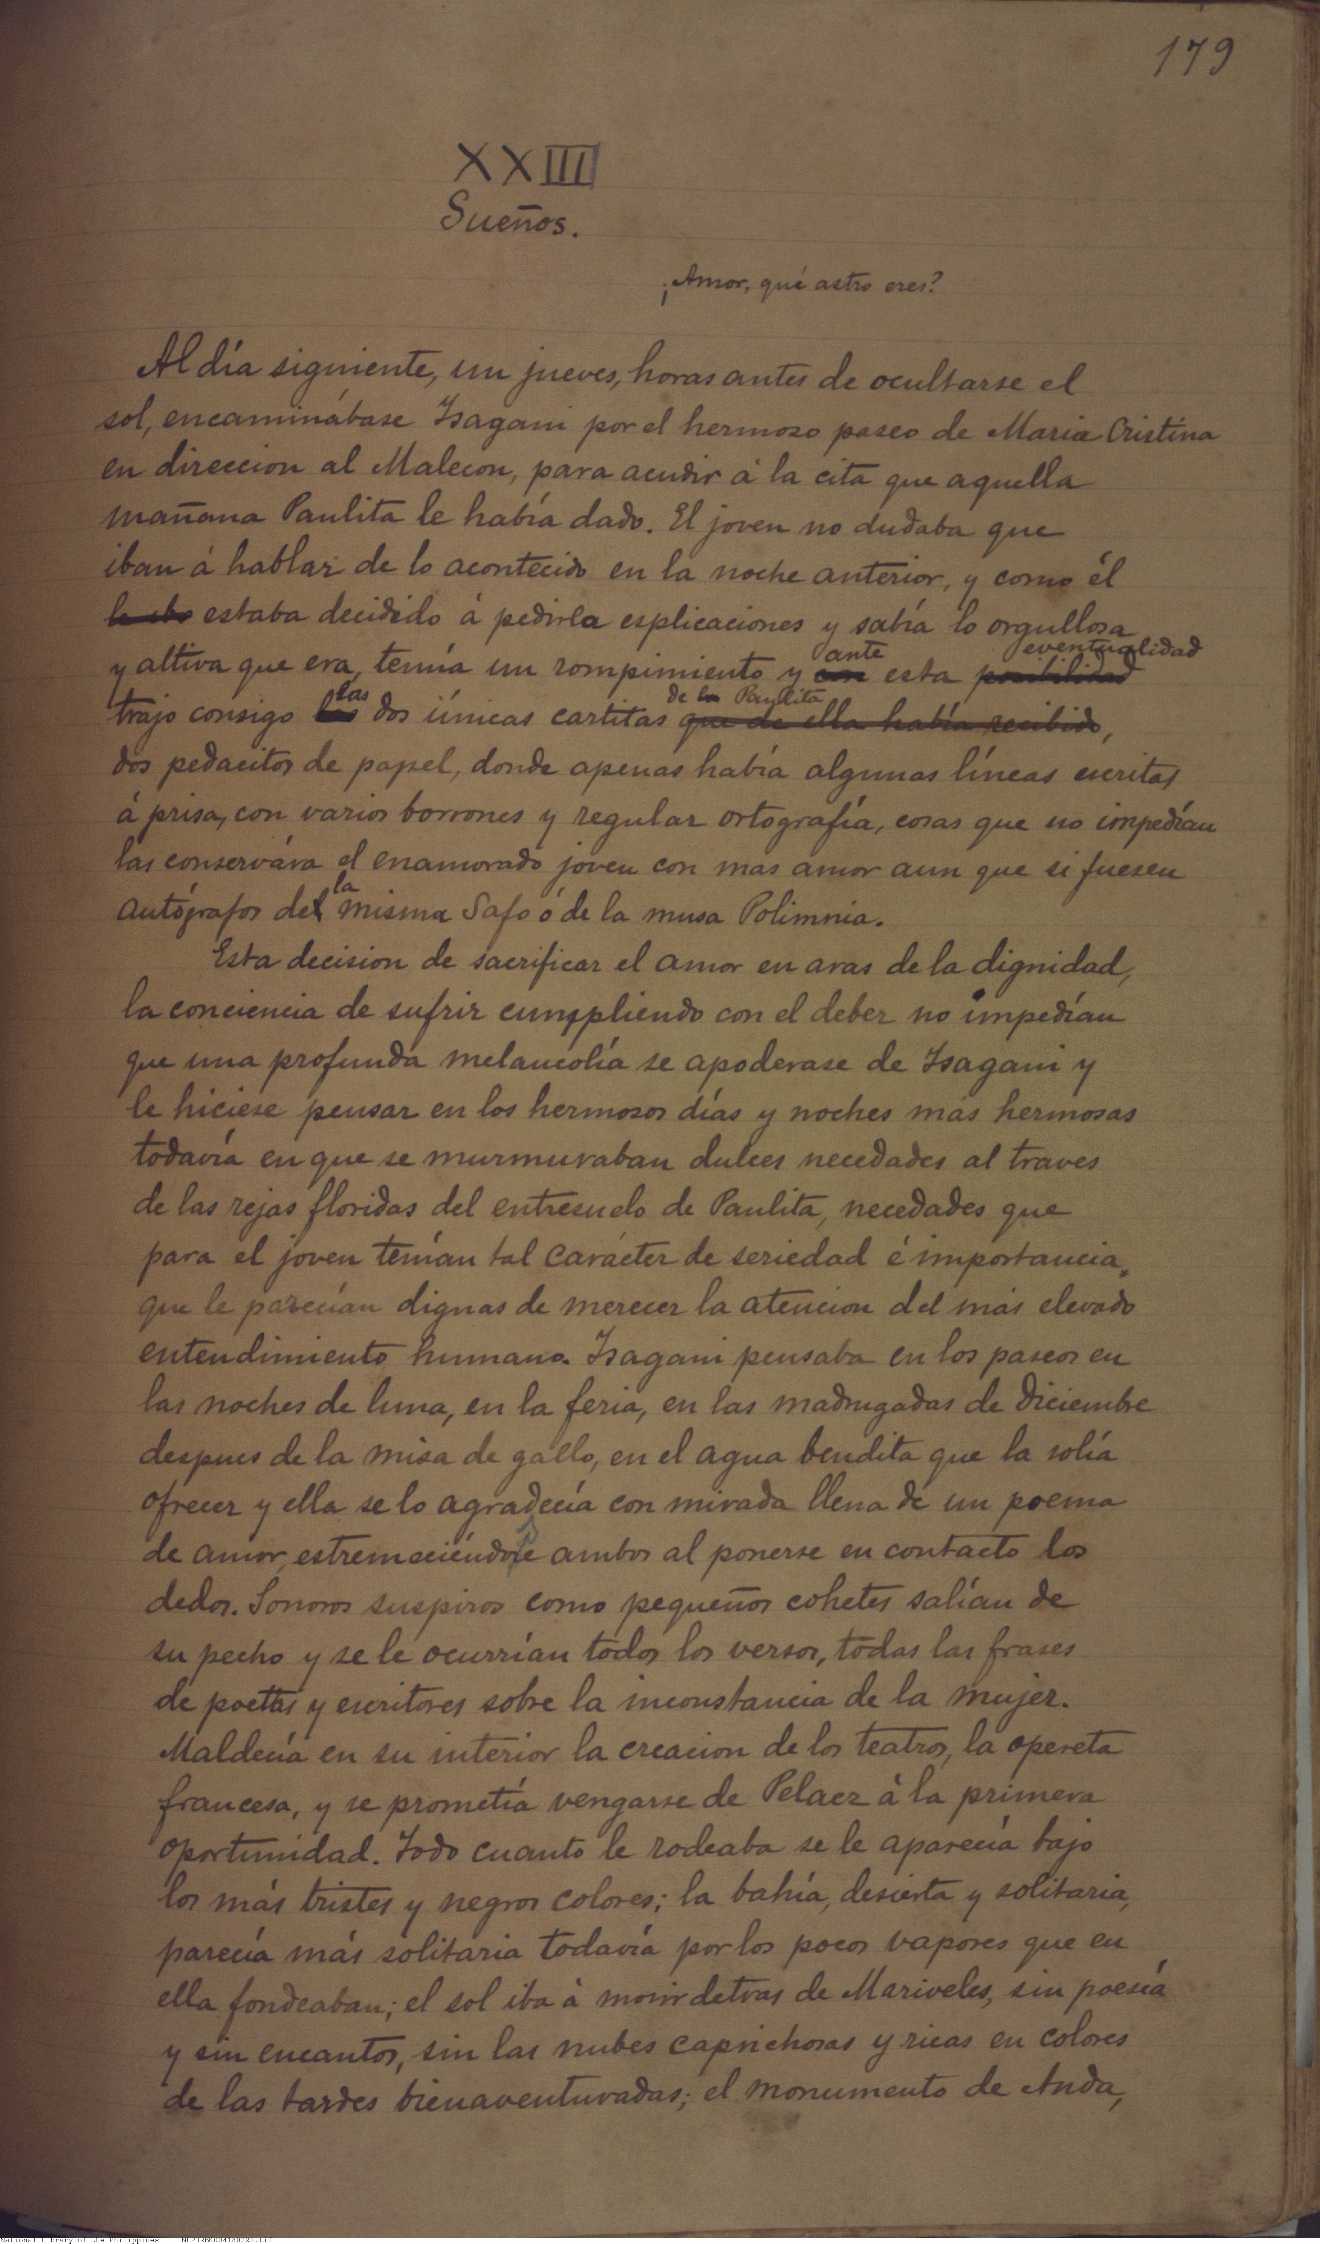 179
XXIII
Sueños.
¡Amor, qué astro eres?
Al día siguiente, un jueves, horas antes de ocultarse el
sol, encaminábase Isagani por el hermoso paseo de Maria Cristina
en direccion al Malecon, para acudir á la cita que aquella
mañana Paulita le había dado. El joven no dudaba que
iban á hablar de lo acontecido en la noche anterior, y como él
estaba decidido á pedirla esplicaciones y sabía lo orgullosa
y altiva que era, temía un rompimiento y con ante esta posibilidad eventualidad
trajo consigo las dos únicas cartitas que de ella había recibido de la Paulita,
dos pedacitos de papel, donde apenas había algunas líneas escritas
á prisa, con varios borrones y regular ortografía, cosas que no impedían
las conservára el enamorado joven con mas amor aun que si fuesen
autógrafos del la misma Safo ó de la musa Polimnia.
Esta decision de sacrificar el amor en aras de la dignidad,
la conciencia de sufrir cumpliendo con el deber no impedían
que una profunda melancolía se apoderase de Isagani y
le hiciese pensar en los hermosos días y noches más hermosas
todavía en que se murmuraban dulces necedades al traves
de las rejas floridas del entresuelo de Paulita, necedades que
para el joven tenían tal carácter de seriedad é importancia,
que le parecían dignas de merecer la atencion del más elevado
entendimiento humano. Isagani pensaba en los paseos en
las noches de luna, en la feria, en las madrugadas de diciembre
despues de la misa de gallo, en el agua bendita que la solía
ofrecer y ella se lo agradecía con mirada llena de un poema
de amor, estremeciéndose ambos al ponerse en contacto los
dedos. Sonoros suspiros como pequeños cohetes salían de
su pecho y se le ocurrían todos los versos, todas las frases
de poetas y escritores sobre la inconstancia de la mujer.
Maldecía en su interior la creacion de los teatros, la opereta
francesa, y se prometía vengarse de Pelaez á la primera
oportunidad. Todo cuanto le rodeaba se le aparecía bajo
los más tristes y negros colores; la bahía, desierta y solitaria,
parecía más solitaria todavía por los pocos vapores que en
ella fondeaban; el sol iba á morir detras de Mariveles, sin poesía
y sin encantos, sin las nubes caprichosas y ricas en colores
de las tardes bienaventuradas; el monumento de Anda,